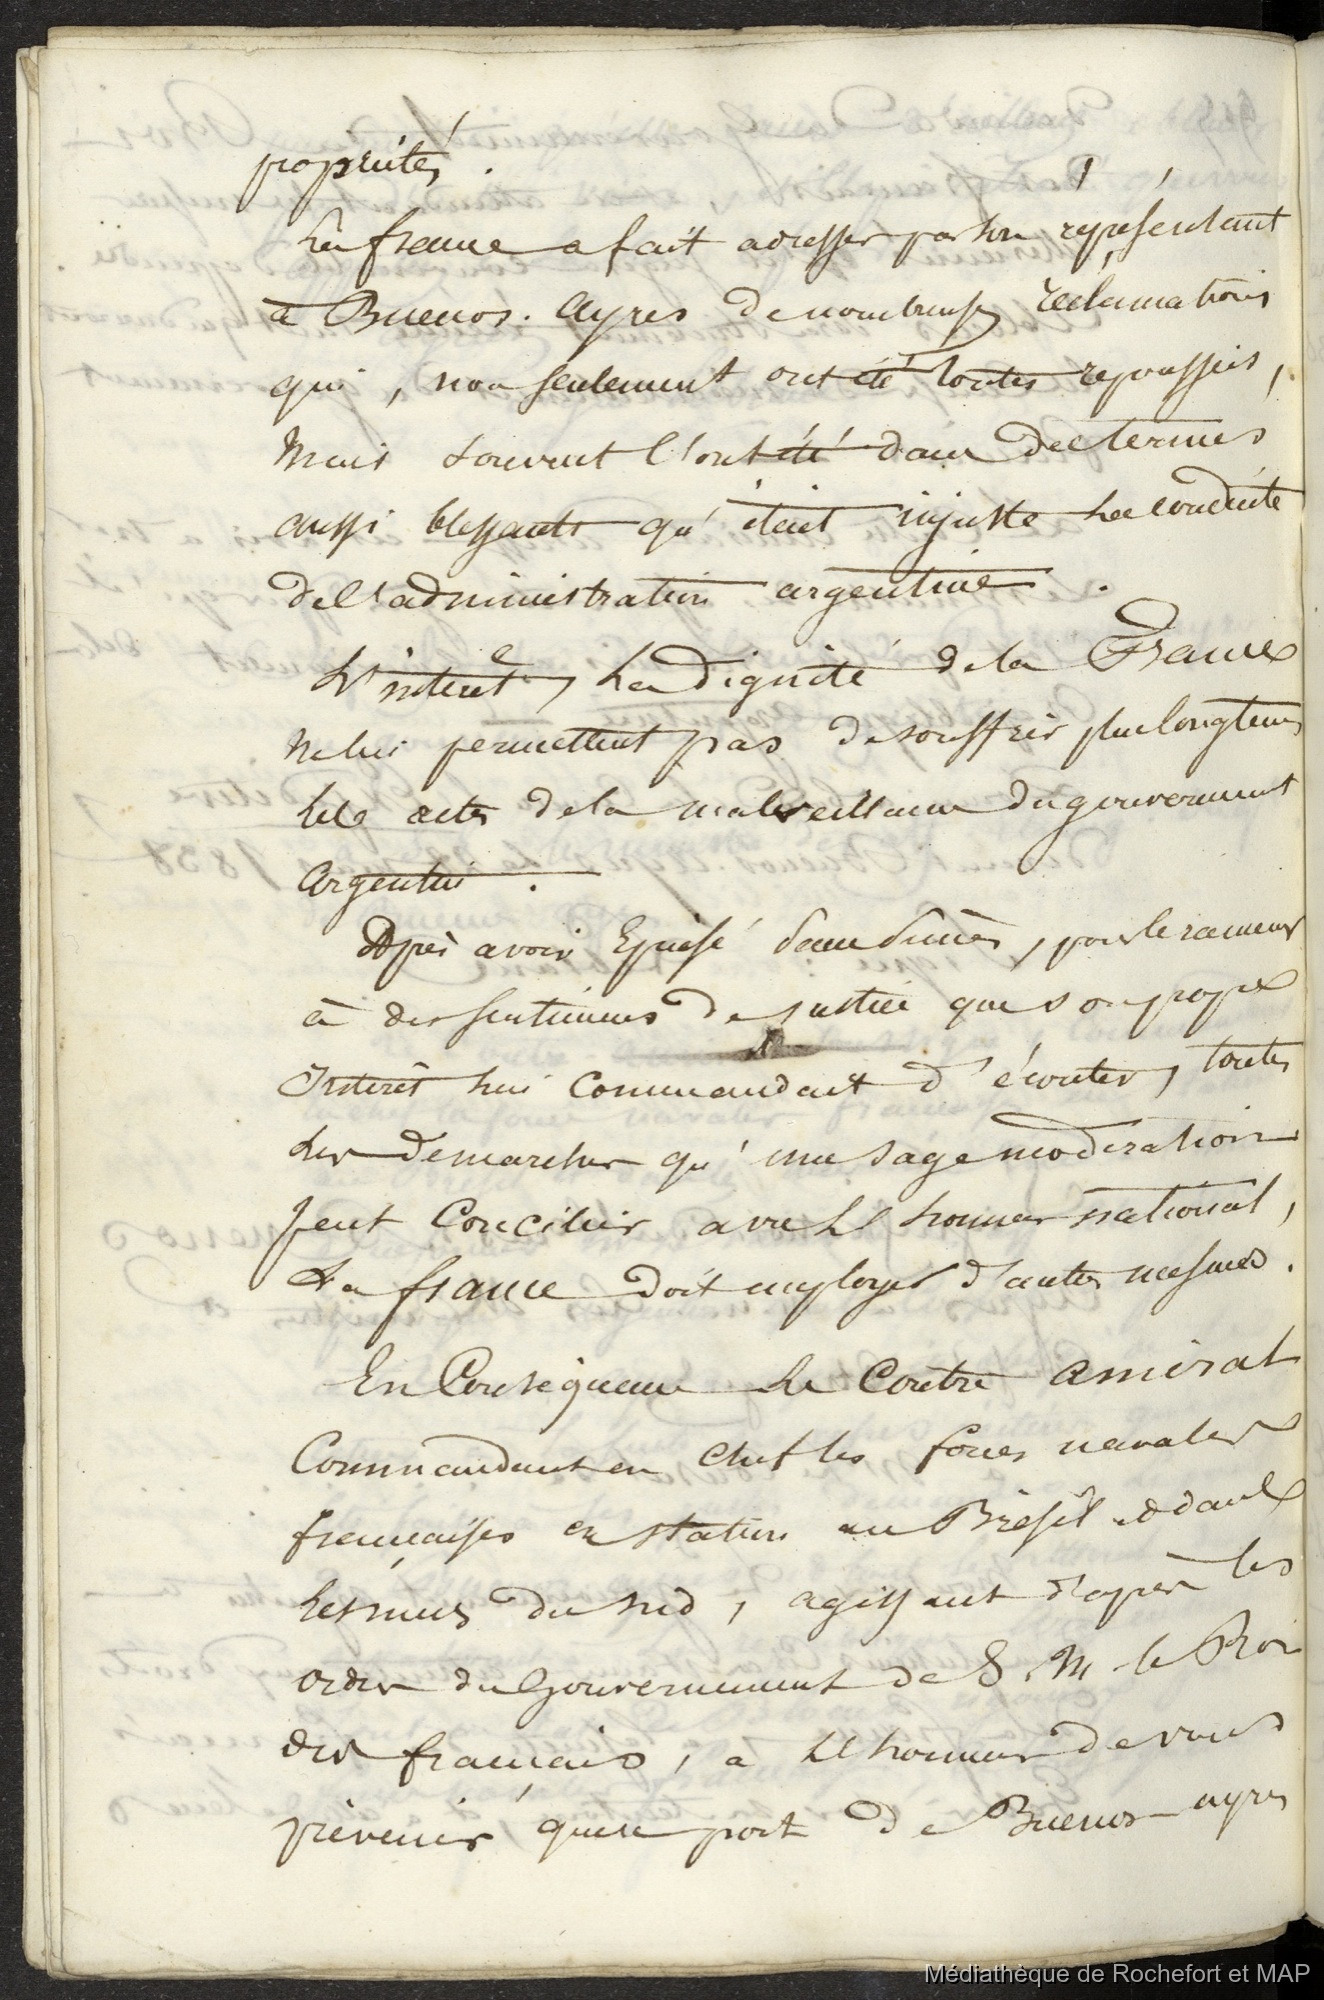 propriétés.
La france a fait adresser par son représentant
à Buenos. Ayres de nombreuses réclamations
qui, non seulement ont été toutes repoussées,
Mais souvent l'ont été dans des termes
aussi blessants qu'était injuste la conduite
de l'administration argentine.
L'intéret, la dignité de la France
ne lui permettent pas de souffrir plus longtems
les actes de la malveillance du gouvernement
argentin.
Après avoir épuisé dans, pour le ramener
à des sentimens de justice que son propre
Interêt lui commandait d'écouter, toutes
les demarches qu'une sage moderation
peut concilier avec l'honneur national,
La france doit employer d'autres mesures.
En Conséquence le Contre amiral
Commandant en chef les forces navales
françaises en station au Brésil et dans
les mers du sud, agissant d'après les
ordres du Gouvernement de S. M. le Roi
des français, a l'honneur de vous
prévenir que le port de Buenos-ayres
Médiathèque de Rochefort et MAP